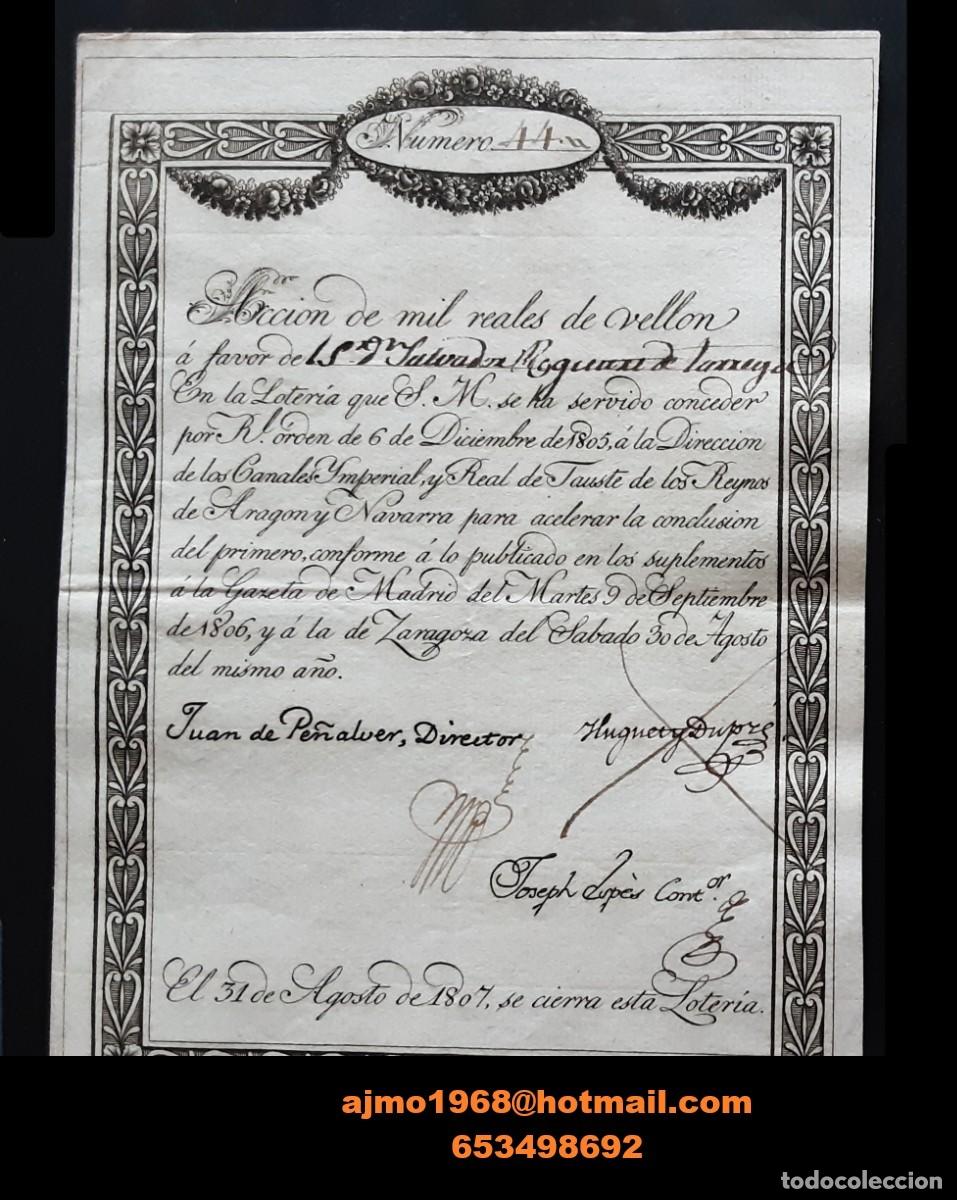 Numero 44
Accion de mil reales de vellon
á favor de l Sr. Dn. Salvador de
En la Lotería que S. M. se ha servido conceder
por Rl. órden de 6 de Diciembre de 1805, á la Direccion
de los Canales Ymperial, y Real de Tauste de los Reynos
de Aragon y Navarra para acelerar la conclusion
del primero, conforme á lo publicado en los suplementos
á la Gazeta de Madrid del Martes 9 de Septiembre
de 1806, y á la de Zaragoza del Sabado 30 de Agosto
del mismo año.
Juan de Peñalver, Director
Huguet y Dupré
Joseph Lopès Contor.
El 31 de Agosto de 1807, se cierra esta Lotería.
ajmo1968@hotmail.com
653498692
todocoleccion